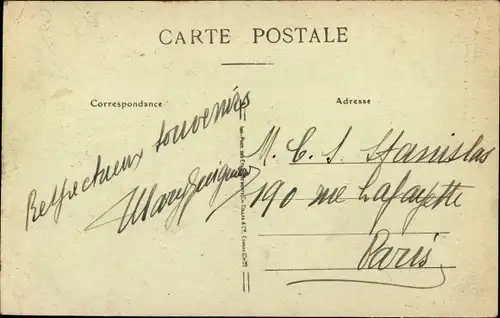 CARTE POSTALE
Correspondance
Adresse
Respectueux souvenirs
M. C. S. Stanislas
190 rue Lafayette
Paris